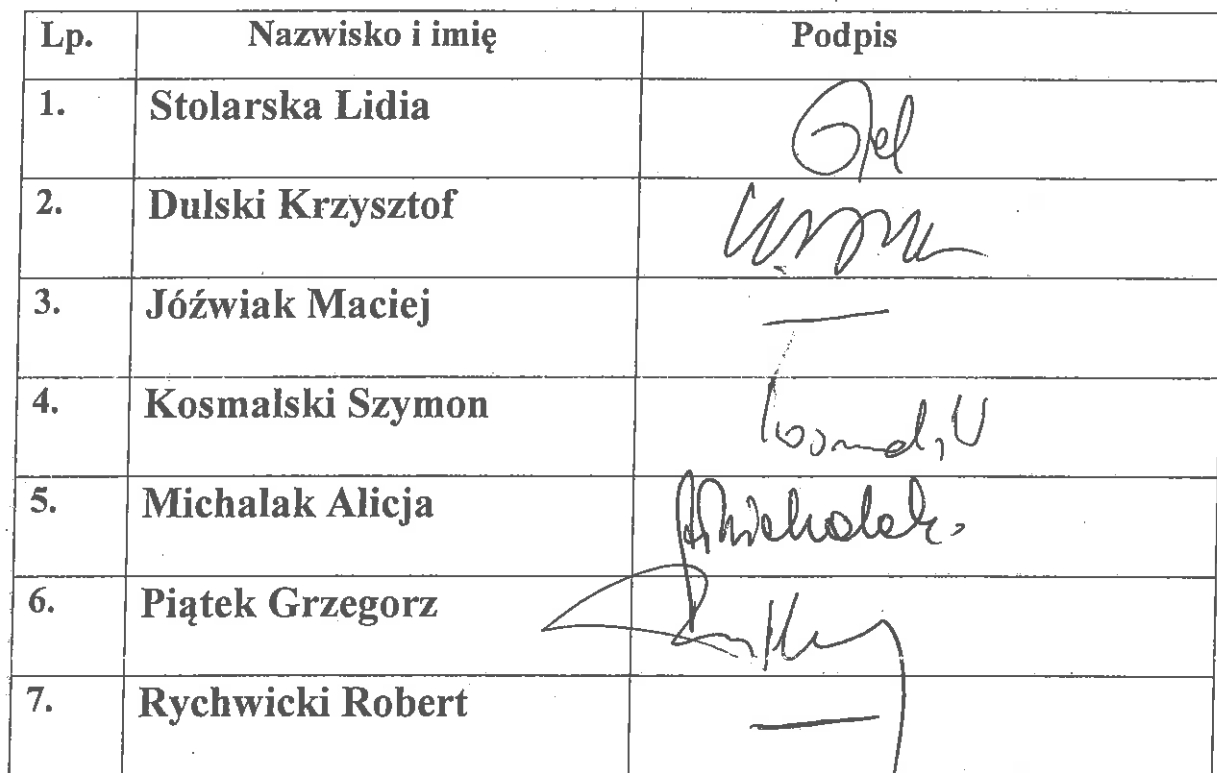 Lp. Nazwisko i imię Podpis
1. Stolarska Lidia
2. Dulski Krzysztof
3. Jóźwiak Maciej —
4. Kosmalski Szymon
5. Michalak Alicja AMichalak
6. Piątek Grzegorz
7. Rychwicki Robert —